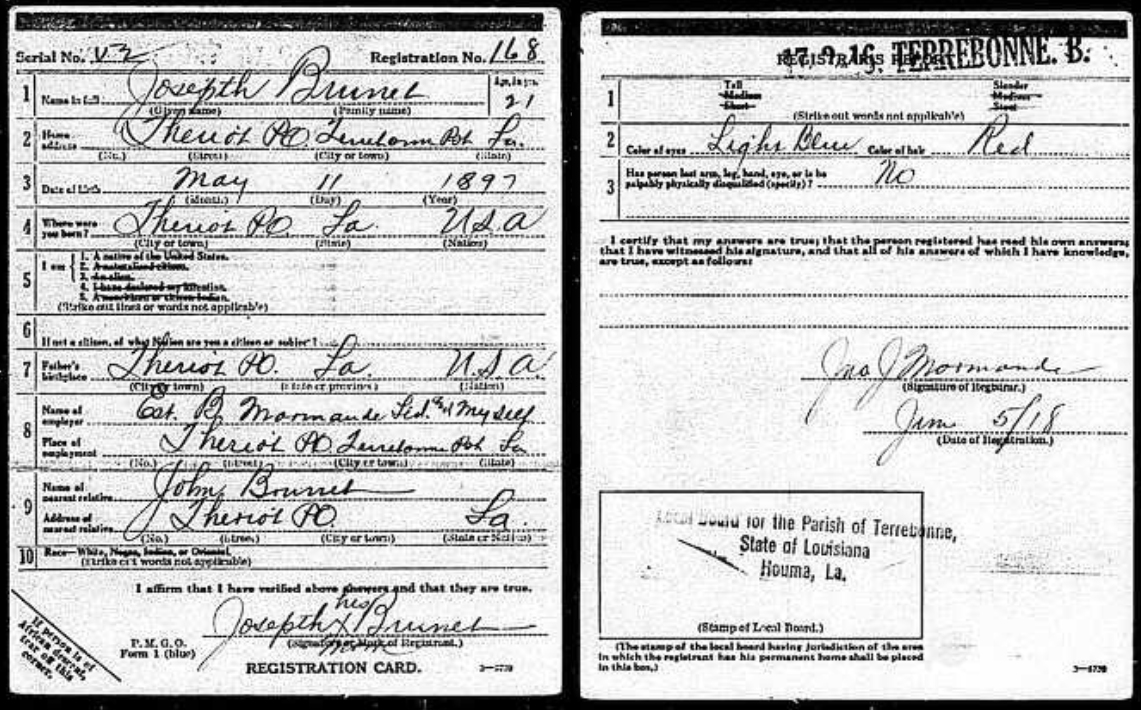 Serial No. V-2 Registration No. 168
1 Name in full Josepth Brunet Age, in yrs. 21
(Given name) (Family name)
2 Home address Theriot PO Terrebonne Psh La.
(No.) (Street) (City or town) (State)
3 Date of birth May 11 1897
(Month.) (Day) (Year)
4 Where were you born? Theriot PO La. U.S.A
(City or town) (State) (Nation)
5 I am
1. A native of the United States.
2. A naturalized citizen.
3. An alien.
4. I have declared my intention.
5. A noncitizen or citizen Indian.
(Strike out lines or words not applicable)
6 If not a citizen, of what Nation are you a citizen or subject?
7 Father's birthplace Theriot PO. La. U.S.A.
(City or town) (State or province) (Nation)
8 Name of employer Est. B. Mormande Ltd. and Myself
Place of employment Theriot PO Terrebonne Psh La
(No.) (Street) (City or town) (State)
9 Name of nearest relative John Brunet
Address of nearest relative Theriot PO La.
(No.) (Street) (City or town) (State or Nation)
10 Race—White, Negro, Indian, or Oriental.
(Strike out words not applicable)
I affirm that I have verified above answers and that they are true.
his
Josepth X Brunet
(Signature or Mark of Registrant.)
P. M. G. O.
Form 1 (blue)
REGISTRATION CARD.
If person is of
African descent,
tear off this
corner.
17. 9-16. TERREBONNE. B.
REGISTRAR'S REPORT
1 Tall Medium Short Slender Medium Stout
(Strike out words not applicable)
2 Color of eyes Light Blue Color of hair Red
3 Has person lost arm, leg, hand, eye, or is he
palpably physically disqualified (specify)? No
I certify that my answers are true; that the person registered has read his own answers;
that I have witnessed his signature, and that all of his answers of which I have knowledge,
are true, except as follows:
Jno J Mormande
(Signature of Registrar.)
June 5/18
(Date of Registration.)
Local Board for the Parish of Terrebonne,
State of Louisiana
Houma, La.
(Stamp of Local Board.)
(The stamp of the local board having jurisdiction of the area
in which the registrant has his permanent home shall be placed
in this box.)